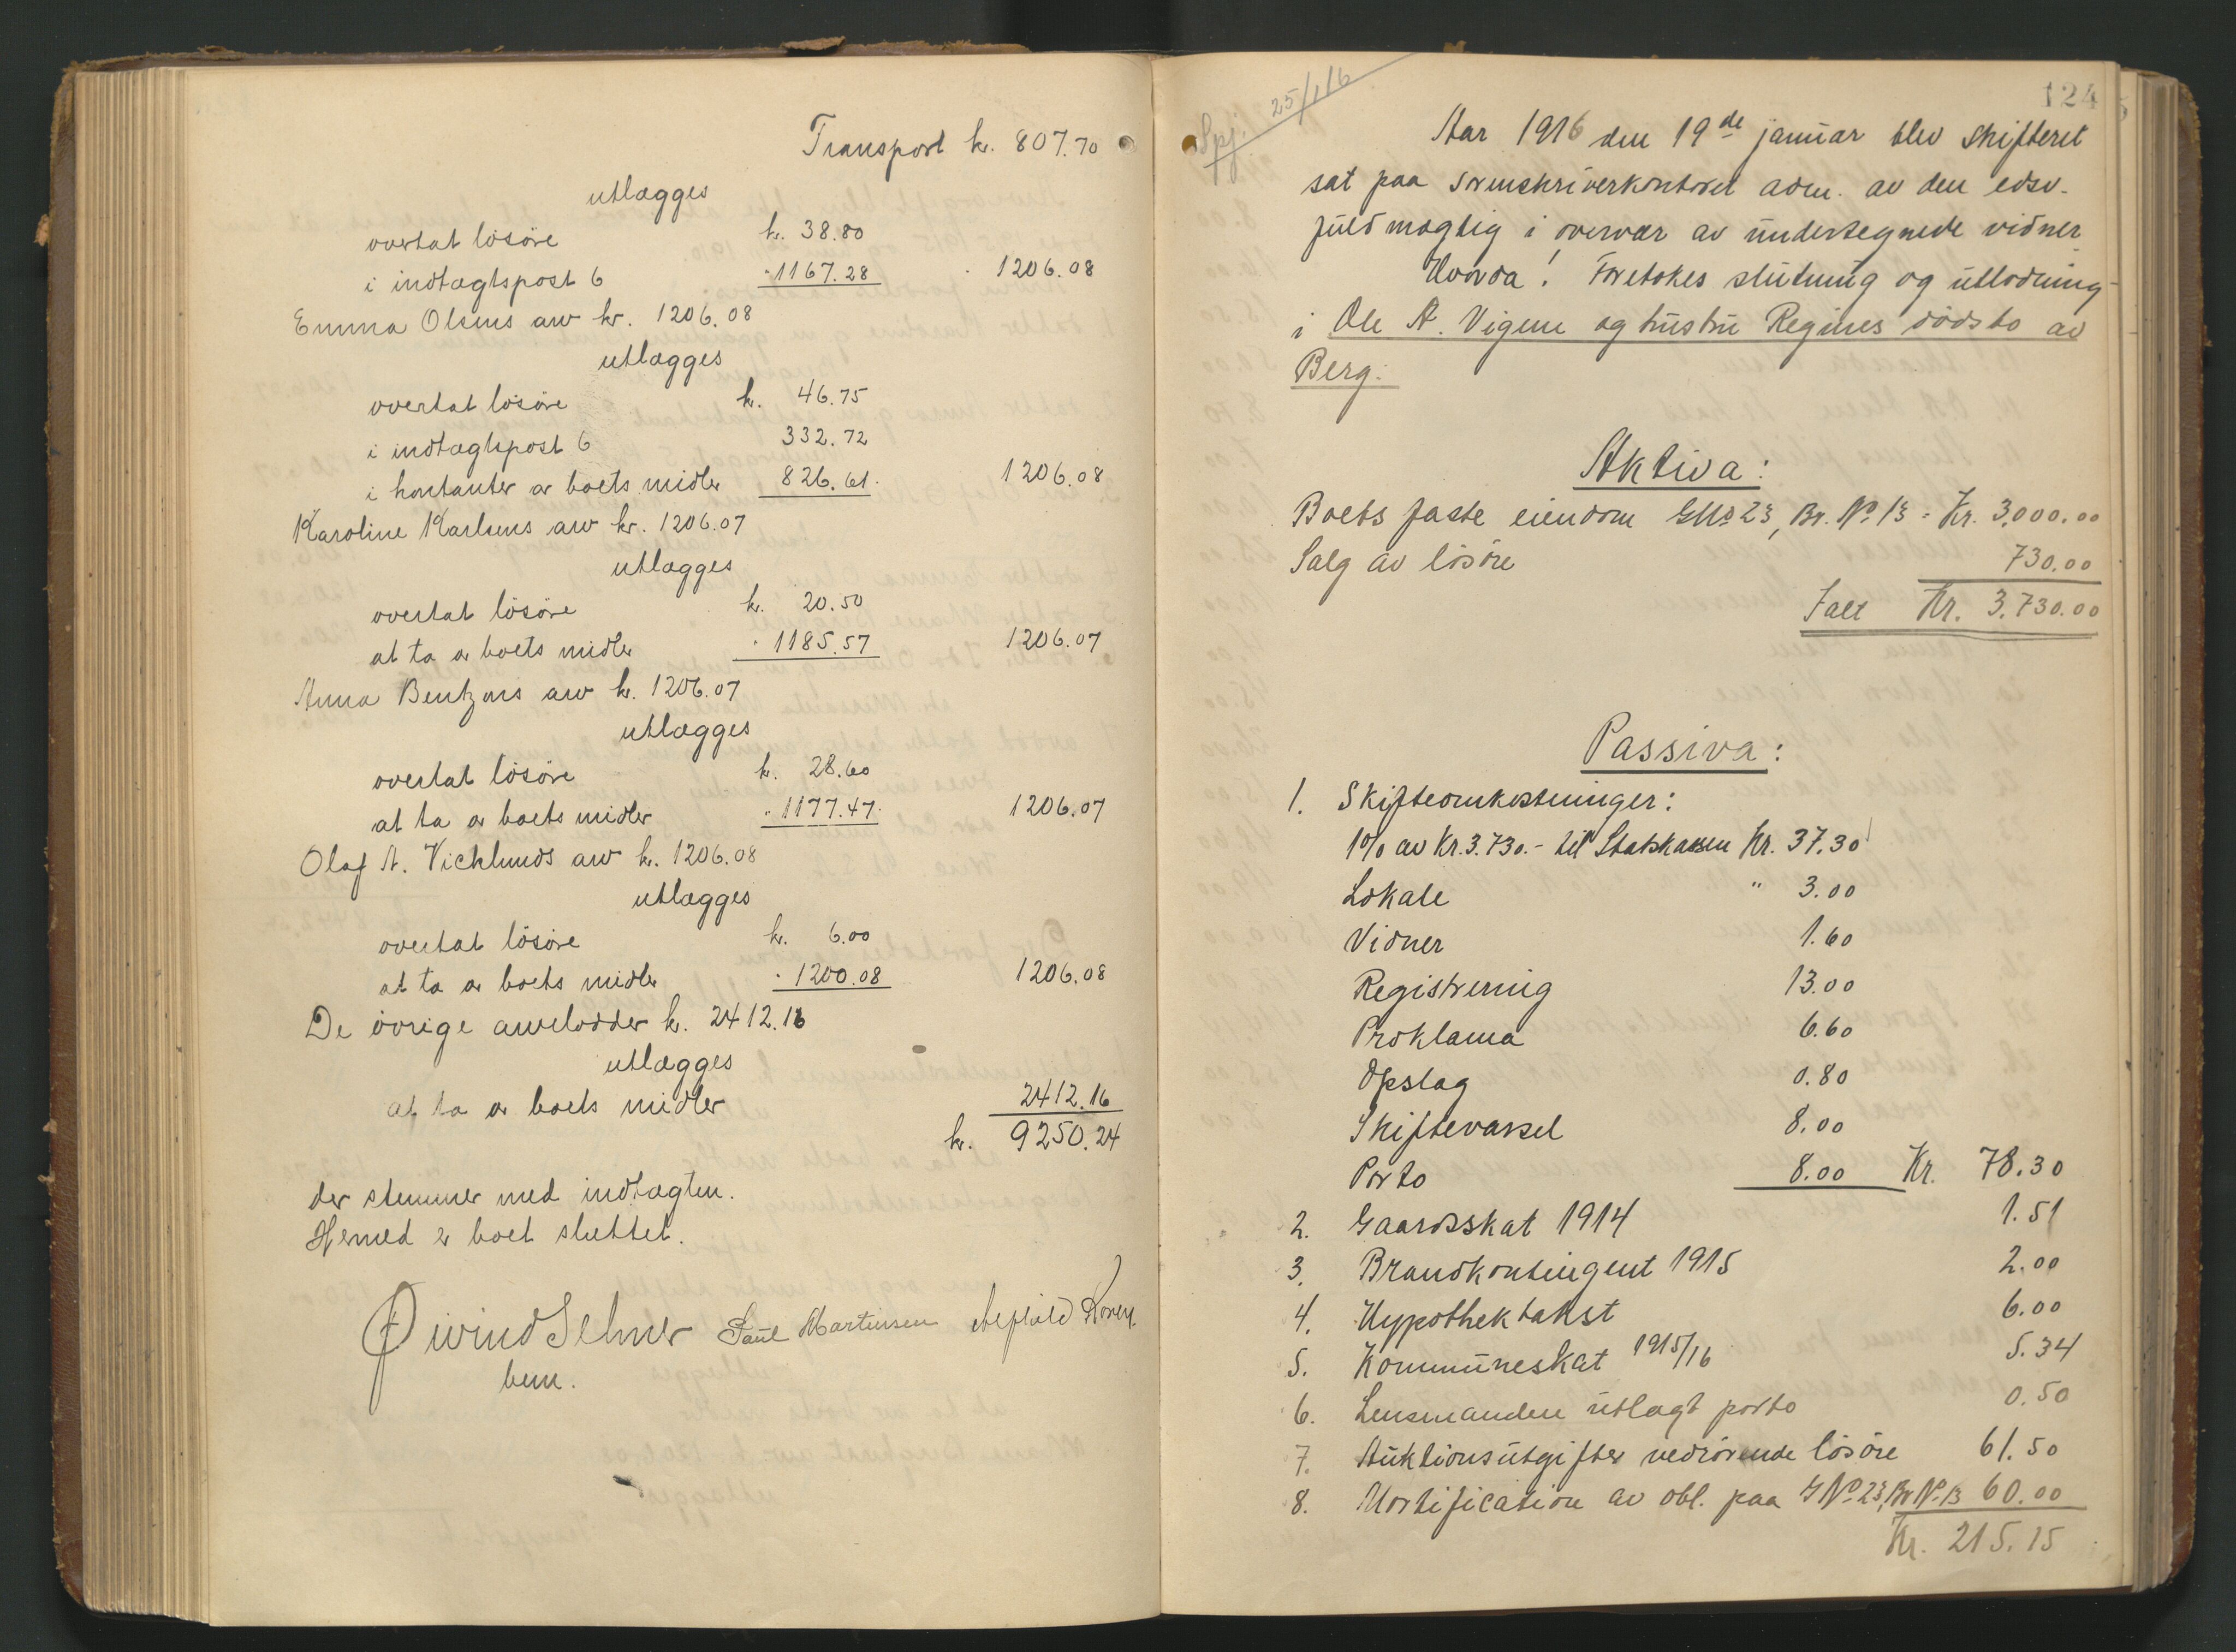 Transport kr. 807.70
utlægges
overtat lösöre kr. 38.80
i indtægtspost 6 " 1167.28 " 1206.08
Emma Olsens arv kr. 1206.08
utlægges
overtat lösöre kr. 46.75
i indtægtspost 6 332.72
i kontanter av boets midler 826.61 1206.08
Karoline Karlsens arv kr. 1206.07
utlægges
overtat lösöre kr. 20.50
at ta av boets midler " 1185.57 1206.07
Anna Bentzens arv kr. 1206.07
utlægges
overtat lösöre kr. 28.60
at ta av boets midler " 1177.47 1206.07
Olaf A. Vicklunds arv kr. 1206.08
utlægges
overtat lösöre kr. 6.00
at ta av boets midler " 1200.08 1206.08
De övrige arvelodder kr. 2412.16
utlægges
at ta av boets midler 2412.16
kr. 9250.24
der stemmer med indtægten.
Hermed er boet sluttet.
Øivind Selmer Paul Martinsen
bem.
124
Spj. 25/1 16
Aar 1916 den 19de januar blev skifteret
sat paa sorenskriverkontoret adm. av den edsv.
fuldmægtig i overvær av undertegnede vidner
Hvorda! Foretokes slutning og utlodning
i Ole A. Vigene og hustru Regines dödsbo av
Berg.
Aktiva:
Boets faste eiendom GNo 23, Br. No. 13 = Kr. 3,000.00
Salg av lösöre 730.00
Ialt Kr. 3.730.00
Passiva:
1. Skifteomkostninger:
1% av Kr. 3.730.- til Statskassen Kr. 37.30
Lokale " 3.00
Vidner 1.60
Registrering 13.00
Proklama 6.60
Opslag 0.80
Skiftevarsel 8.00
Porto 8.00 Kr. 78.30
2. Gaardsskat 1914 1.51
3. Brandkontingent 1915 2.00
4. Hypothektakst 6.00
5. Kommuneskat 1915/16 5.34
6. Lensmanden utlagt porto 0.50
7. Auktionsutgifter vedrörende lösöre 61.50
8. Mortification av obl. paa GNo. 23, BrNo. 13 60.00
Kr. 215.15